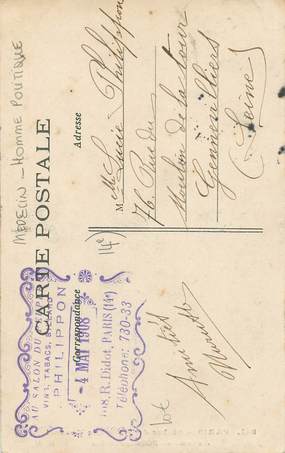 MÉDECIN - HOMME POLITIQUE
CARTE POSTALE
Correspondance
Adresse
(14e)
AU SALON DU
VINS, TABACS,
PHILIPPON
-4 MAI 1908
108, R. Didot, PARIS (14e)
Téléphone: 730-33
Amitiés
lot
Melle Lucie Philippon
76 Rue du
Moulin de la Tour
Gennevilliers
(Seine)